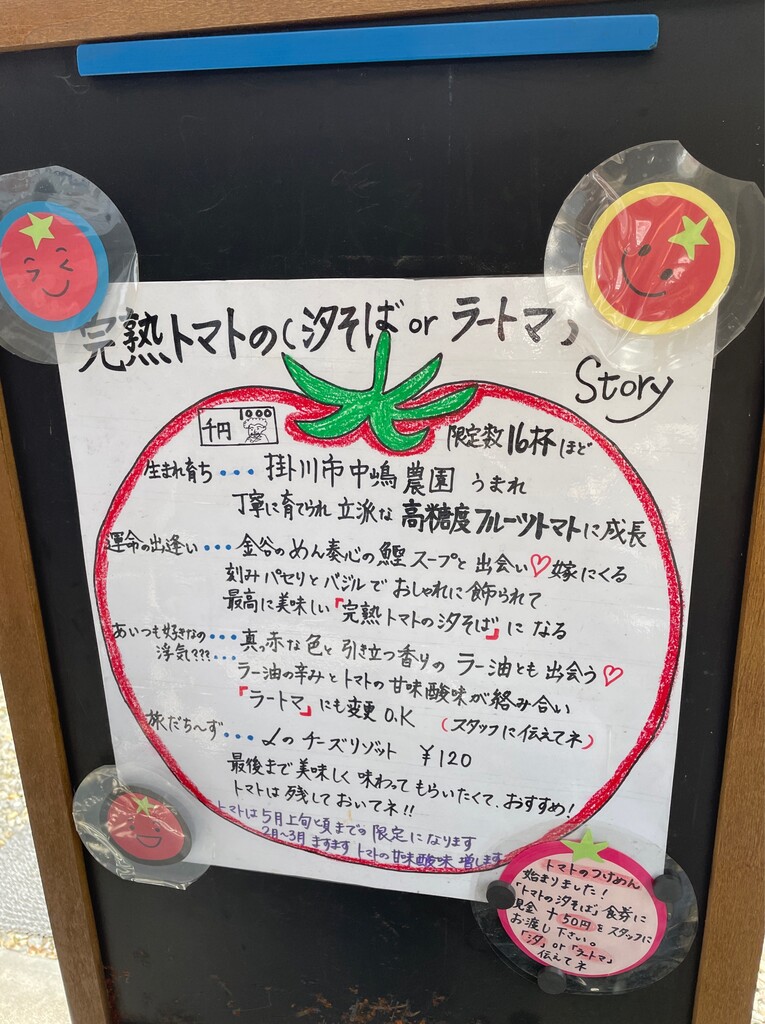 完熟トマトの(汐そば or ラートマ)
Story
千円 1000
限定数16杯ほど
生まれ育ち・・・掛川市中嶋農園 うまれ
丁寧に育てられ 立派な 高糖度フルーツトマトに成長
運命の出逢い・・・金谷のめん奏心の鰹スープと出会い♡嫁にくる
刻みパセリとバジルでおしゃれに飾られて
最高に美味しい『完熟トマトの汐そば』になる
あいつも好きなの・・・真っ赤な色と引き立つ香りのラー油とも出会う♡
浮気し???・・・ラー油の辛みとトマトの甘味酸味が絡み合い
『ラートマ』にも変更O.K (スタッフに伝えてネ)
旅だち〜ず・・・〆のチーズリゾット ¥120
最後まで美味しく味わってもらいたくて、おすすめ!
トマトは残しておいてネ!!
トマトは5月上旬頃までの限定になります
2月〜3月ますますトマトの甘味酸味増します
トマトのつけめん
始まりました!
「トマトの汐そば」食券に
現金+50円をスタッフに
お渡し下さい。
「汐」or「ラートマ」
伝えてネ